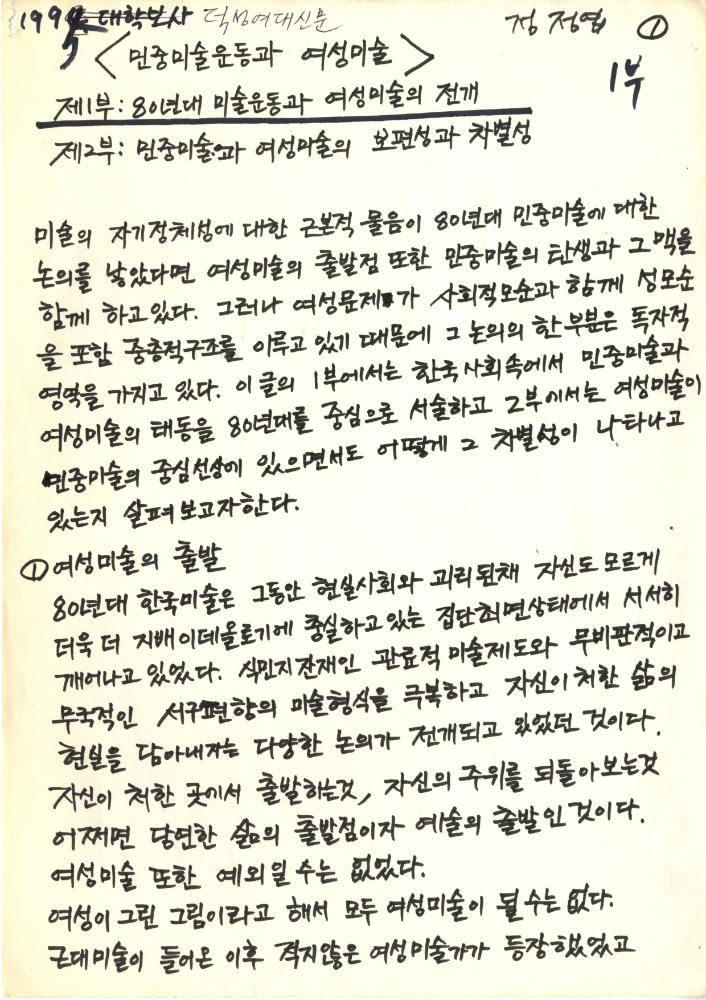 1995 대학보사 덕성여대신문 정정엽 ①
<민중미술운동과 여성미술> 1부
제1부: 80년대 미술운동과 여성미술의 전개
제2부: 민중미술과 여성미술의 보편성과 차별성
미술의 자기정체성에 대한 근본적 물음이 80년대 민중미술에 대한
논의를 낳았다면 여성미술의 출발점 또한 민중미술의 탄생과 그 맥을
함께 하고있다. 그러나 여성문제가 사회적모순과 함께 성모순
을 포함 중층적구조를 이루고 있기 때문에 그 논의의 한부분은 독자적
영역을 가지고 있다. 이 글의 1부에서는 한국사회속에서 민중미술과
여성미술의 태동을 80년대를 중심으로 서술하고 2부에서는 여성미술이
민중미술의 중심선상에 있으면서도 어떻게 그 차별성이 나타나고
있는지 살펴보고자한다.
① 여성미술의 출발
80년대 한국미술은 그동안 현실사회와 괴리된채 자신도 모르게
더욱 더 지배이데올로기에 충실하고있는 집단최면상태에서 서서히
깨어나고 있었다. 식민지잔재인 관료적 미술제도와 무비판적이고
무국적인 서구편향의 미술형식을 극복하고 자신이 처한 삶의
현실을 담아내자는 다양한 논의가 전개되고 있었던 것이다.
자신이 처한 곳에서 출발하는것, 자신의 주위를 되돌아보는것
어쩌면 당연한 삶의 출발점이자 예술의 출발인것이다.
여성미술 또한 예외일 수는 없었다.
여성이 그린 그림이라고 해서 모두 여성미술이 될수는 없다.
근대미술이 들어온 이후 적지않은 여성미술가가 등장했었고